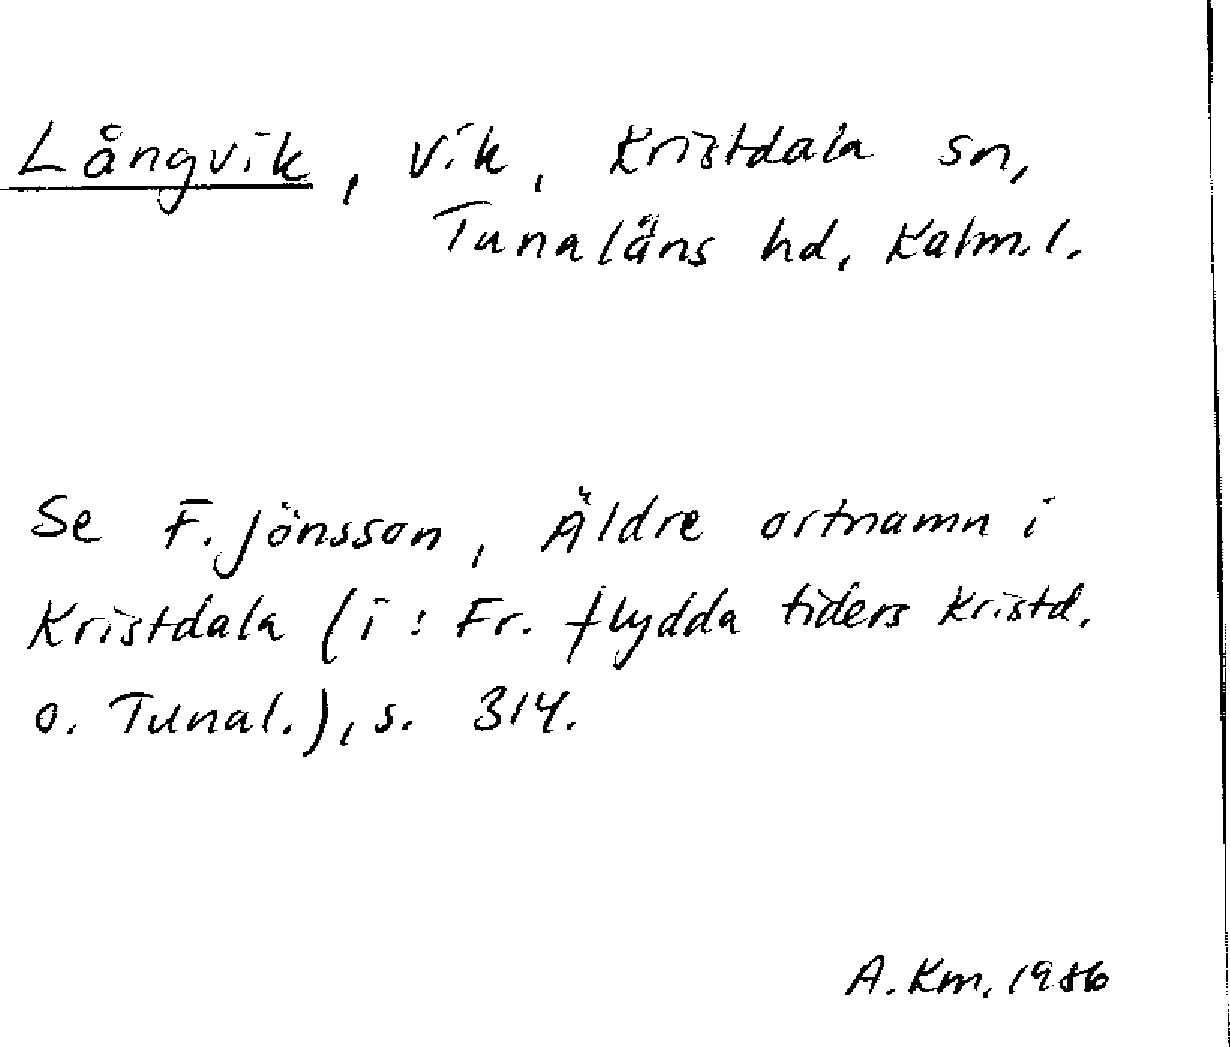 Långvik, vik, Kristdala sn,
Tunaläns hd, Kalm.l.
Se F. Jönsson, Äldre ortnamn i
Kristdala (i: Fr. flydda tiders Kristd.
o. Tunal.), s. 314.
A. Km. 1986